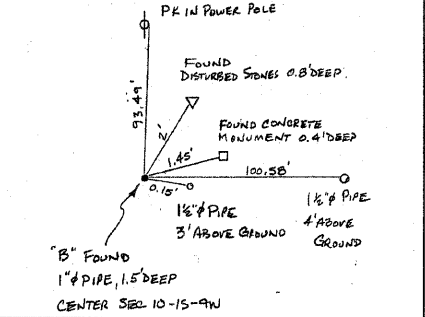 PK IN POWER POLE
FOUND
DISTURBED STONES 0.8' DEEP.
93.49'
2'
FOUND CONCRETE
MONUMENT 0.4' DEEP
1.45'
100.58'
0.15'
1½"ϕ PIPE
3' ABOVE GROUND
1½"ϕ PIPE
4' ABOVE
GROUND
"B" FOUND
1"ϕ PIPE, 1.5' DEEP
CENTER SEC 10-1S-9W